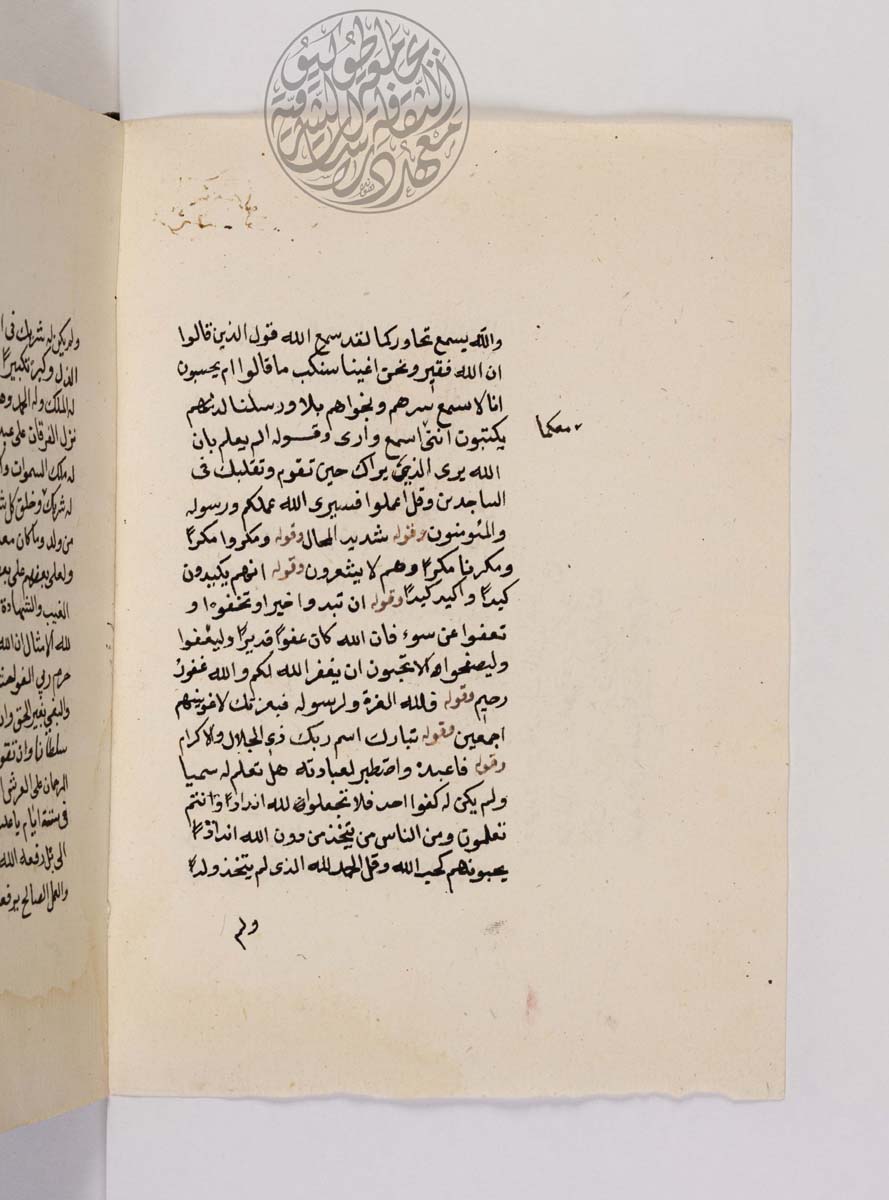 والله يسمع تحاوركما لقد سمع الله قول الذين قالوا
ان الله فقير ونحن اغنيا سنكب ما قالوا ام يحسبون
انا لا سمع سرهم ونجواهم بلا ورسلنا لديهم
يكتبون انني اسمع وارى وقوله الم يعلم بان
معكما
الله يرى الذي يراك حين تقوم وتقلبك فى
الساجدين وقل اعملوا فسيرى الله عملكم ورسوله
والمئومنون وقوله شديد المحال وقوله ومكروا مكرًا
ومكرنا مكرًا وهم لا يشعرون وقوله انهم يكيدون
كيدًا واكيد كيدًا وقوله ان تبدوا خيرا وتخفوه او
تعفوا عن سوء فان الله كان عفوًا قديرًا وليعفوا
وليصفحوا الا تحبون ان يغفر الله لكم والله غفورٌ
رحيم وقوله فلله العزة ولرسوله فبعزتك لاغوينهم
اجمعين وقوله تبارك اسم ربك ذي الجلال والاكرام
وقوله فاعبده واصطبر لعبادته هل تعلم له سميا
ولم يكن له كفوا احد فلا تجعلوا لله اندادًا وانتم
تعلمون ومن الناس من يتخذ من دون الله اندادًا
يحبونهم كحب الله وقل الحمد لله الذى لم يتخذ ولدًا
ولم
ولم يكن له شريك فى
الذل وكبره تكبيرًا
له الملك وله الحمد
نزل الفرقان على
له ملك السموات
له شريك وخلق كل
من ولد وما كان
ولعلى بعضهم على
الغيب والشهادة
لله الامثال ان الله
حرم ربي الفواحش
والبغي بغير الحق
سلطانًا وان
الرحمان على العرش
فى ستة ايام
الى بل رفعه الله
والعمل الصالح
جامعة طوكيو
معهد الثقافة والدراسات الشرقية